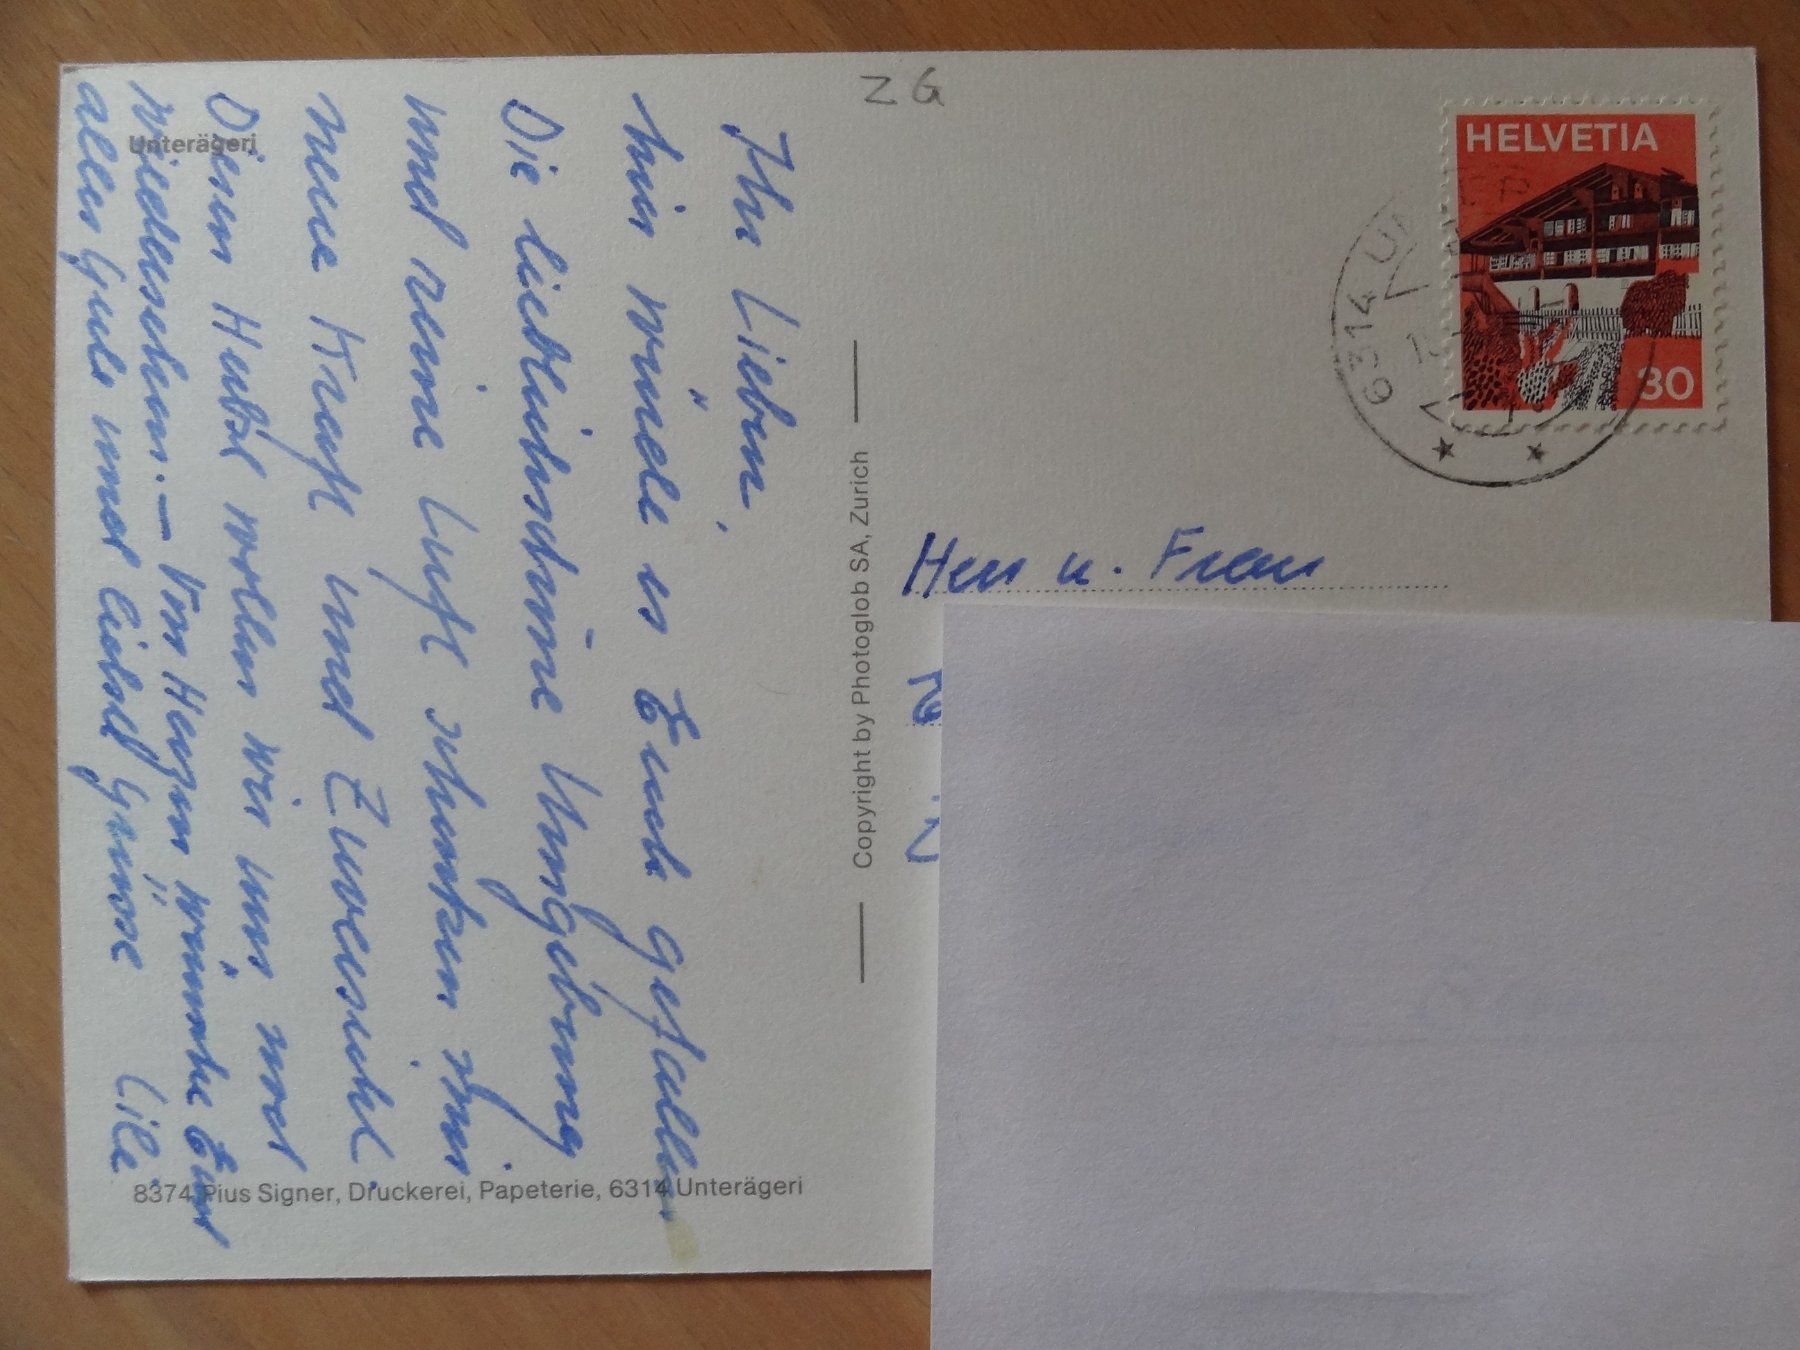 Z G
HELVETIA
30
6314 U
Unterägeri
Ihr Lieben,
hier würde es Euch gefallen.
Die lieblich schöne Umgebung
und reine Luft schenken mir
neue Kraft und Zuversicht.
Diesen Herbst wollen wir uns
wiedersehen. – Von Herzen wünsche Euch
alles Gute und liebe Grüsse
Herr u. Frau
Copyright by Photoglob SA, Zurich
8374 Pius Signer, Druckerei, Papeterie, 6314 Unterägeri